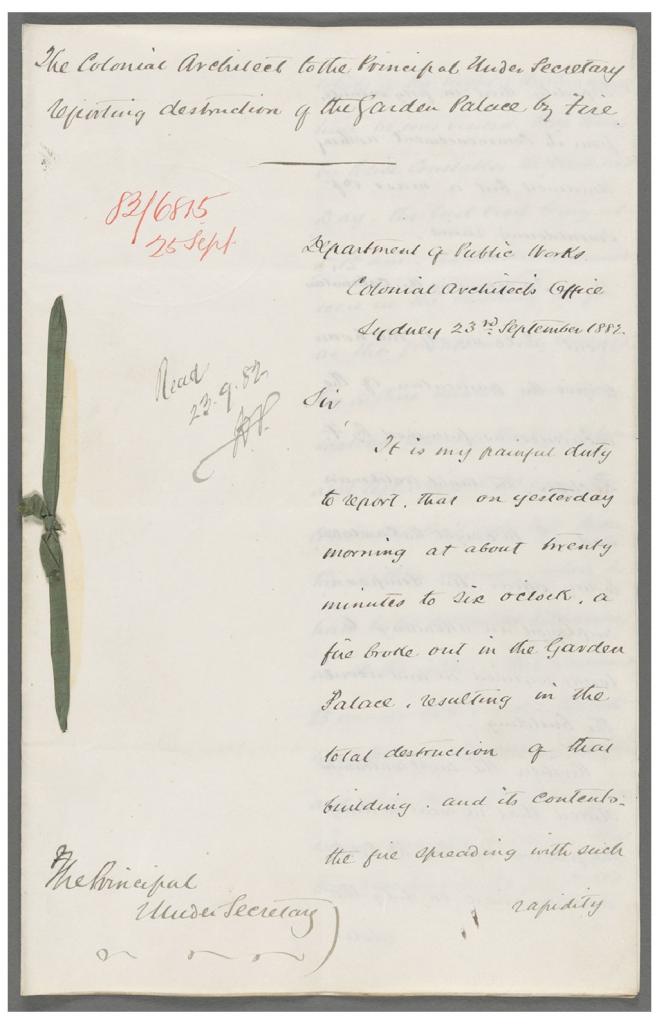 The Colonial Architect to the Principal Under Secretary
reporting destruction of the Garden Palace by Fire
83/6815
25 Sept
Department of Public Works
Colonial Architects Office
Sydney 23rd September 1882.
Read
23.9.82
Sir
It is my painful duty
to report, that on yesterday
morning at about twenty
minutes to six o'clock, a
fire broke out in the Garden
Palace, resulting in the
total destruction of that
building, and its contents–
the fire spreading with such
rapidity
The Principal
Under Secretary